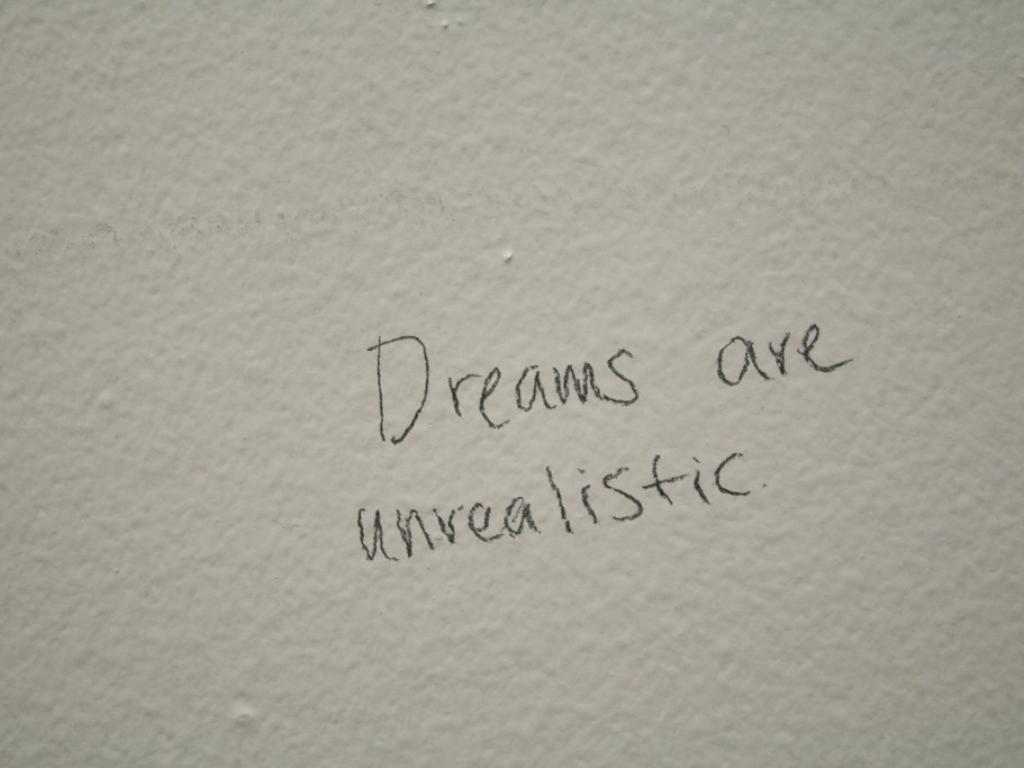 Dreams are
unrealistic.